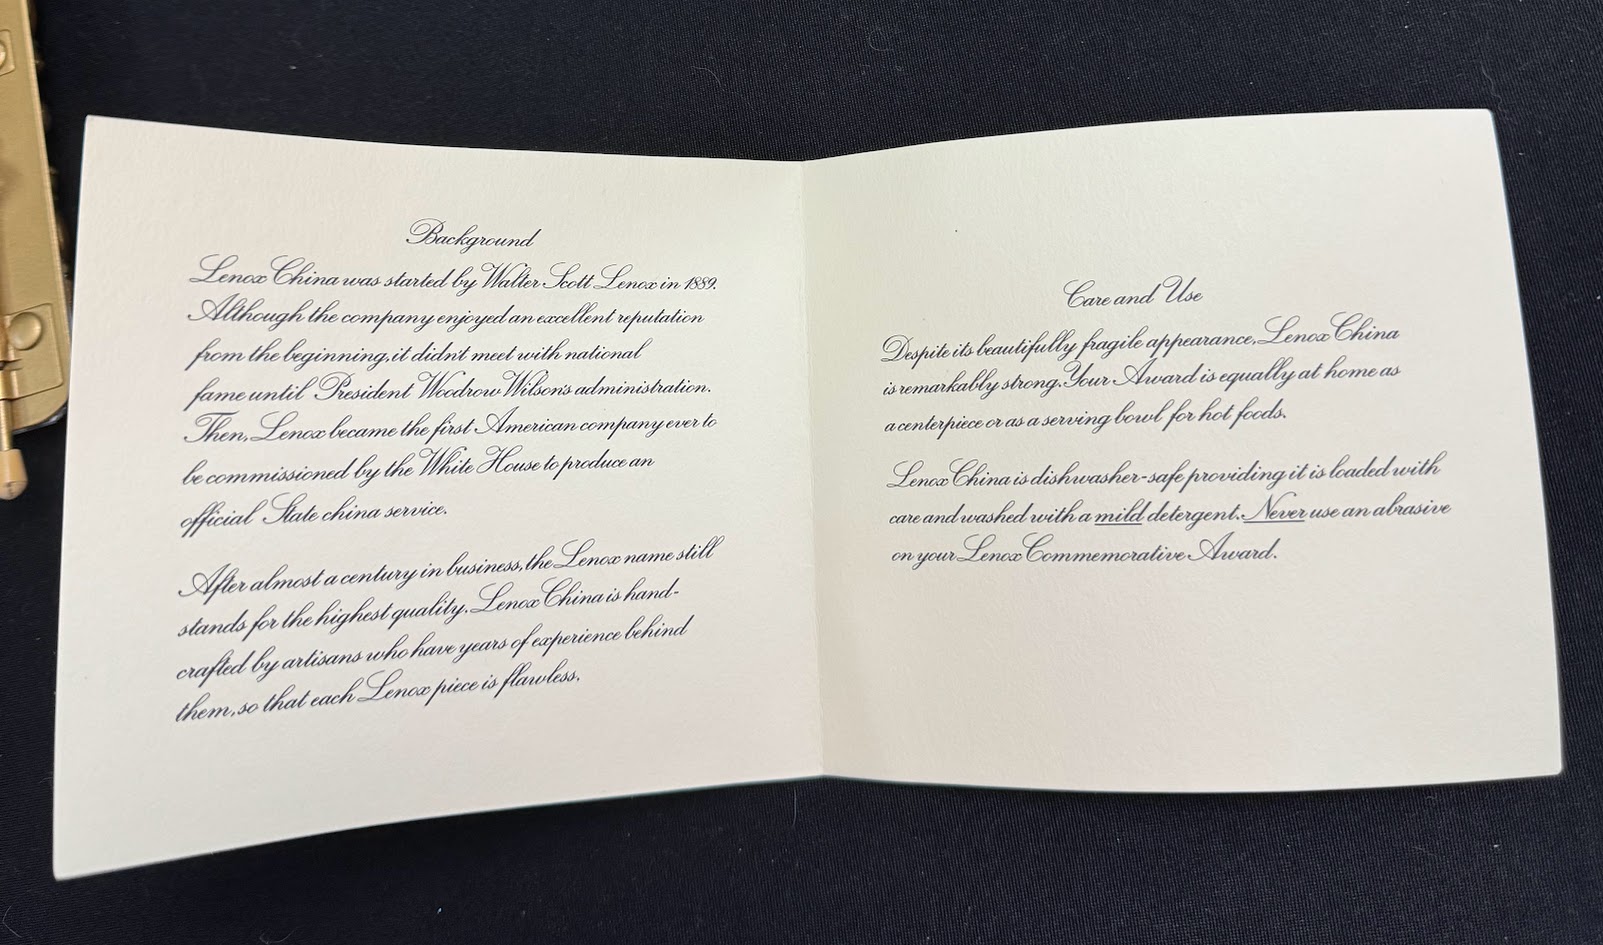 Background
Lenox China was started by Walter Scott Lenox in 1889.
Although the company enjoyed an excellent reputation
from the beginning, it didn't meet with national
fame until President Woodrow Wilson's administration.
Then, Lenox became the first American company ever to
be commissioned by the White House to produce an
official State china service.
After almost a century in business, the Lenox name still
stands for the highest quality. Lenox China is hand-
crafted by artisans who have years of experience behind
them, so that each Lenox piece is flawless.
Care and Use
Despite its beautifully fragile appearance, Lenox China
is remarkably strong. Your Award is equally at home as
a centerpiece or as a serving bowl for hot foods.
Lenox China is dishwasher-safe providing it is loaded with
care and washed with a mild detergent. Never use an abrasive
on your Lenox Commemorative Award.